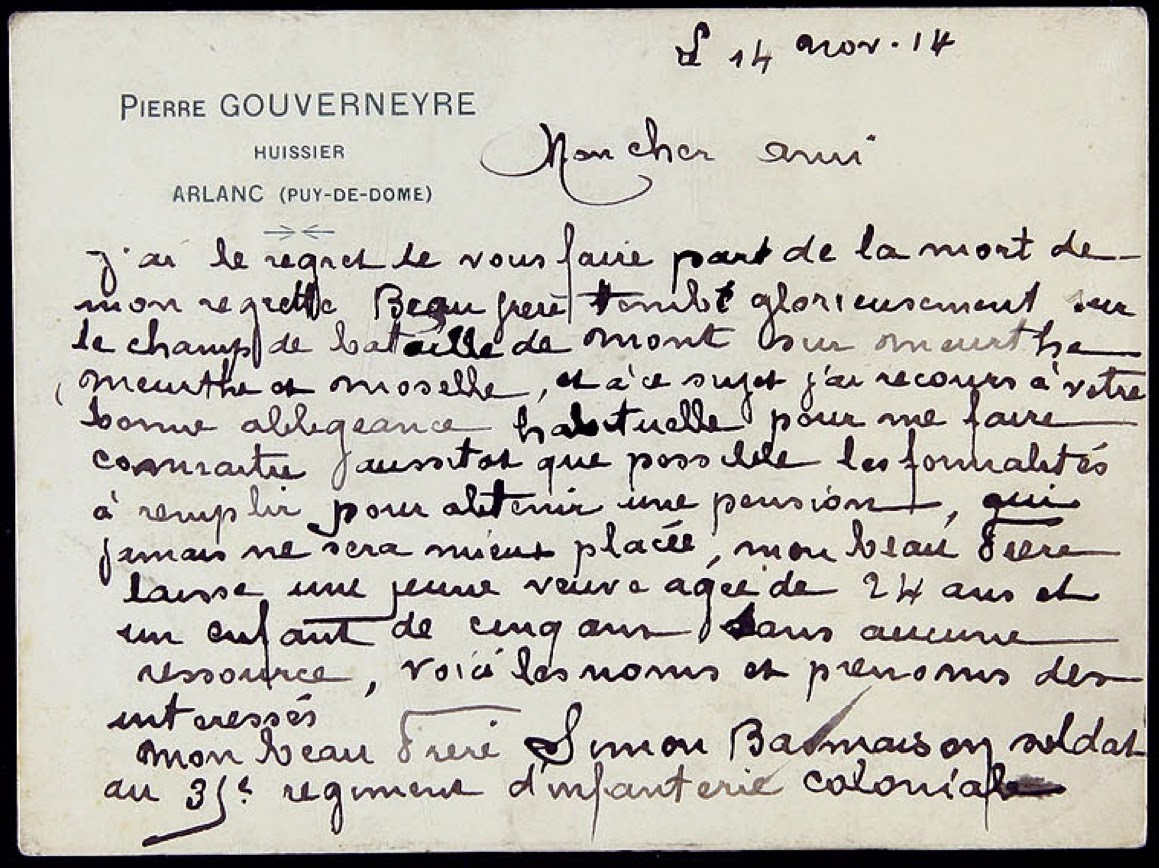 L 14 nov. 14
PIERRE GOUVERNEYRE
HUISSIER
ARLANC (PUY-DE-DOME)
Mon cher ami
j'ai le regret de vous faire part de la mort de
mon regretté Beau frere tombé glorieusement sur
le champ de bataille de mont sur meurthe
meurthe et moselle, et à ce sujet j'ai recours à votre
bonne obligeance habituelle pour me faire
connaitre aussitot que possible les formalités
à remplir pour obtenir une pension, qui
jamais ne sera mieux placée, mon beau frere
laisse une jeune veuve agée de 24 ans et
un enfant de cinq ans sans aucune
ressource, voici les noms et prenoms des
interessés
mon beau frere Simon Balmaison soldat
au 35e regiment d'infanterie coloniale